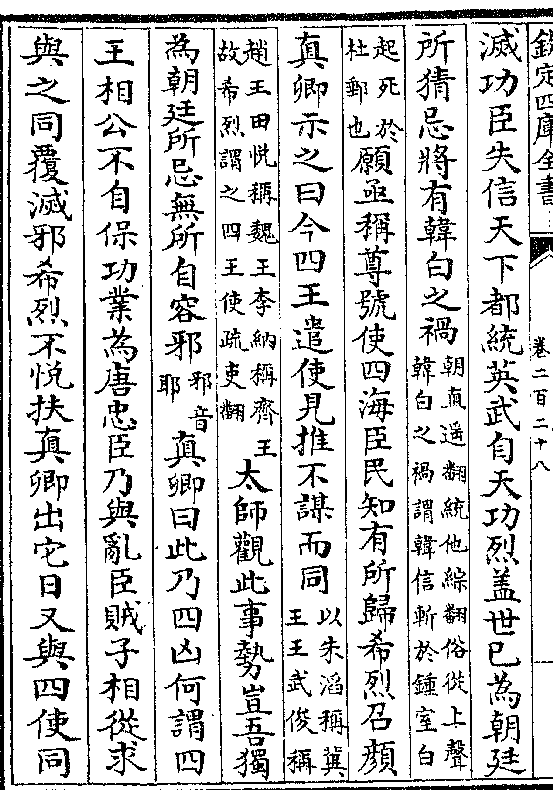 欽定四庫全書
卷二百二十八
滅功臣失信天下都統英武自天功烈蓋世已為朝廷
所猜忌將有韓白之禍朝直遥翻統他綜翻俗從上聲韓白之禍謂韓信斬於鍾室白
起死於杜郵也願亟稱尊號使四海臣民知有所歸希烈召顔
真卿示之曰今四王遣使見推不謀而同以朱滔稱冀王王武俊稱
趙王田悅稱魏王李納稱齊王故希烈謂之四王使疏吏翻太師觀此事勢豈吾獨
為朝廷所忌無所自容邪邪音耶真卿曰此乃四凶何謂四
王相公不自保功業為唐忠臣乃與亂臣賊子相從求
與之同覆滅邪希烈不悅扶真卿出它日又與四使同